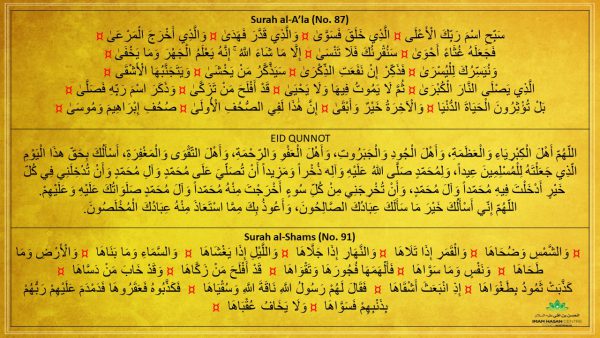 Surah al-A'la (No. 87)
سَبِّحِ اسْمَ رَبِّكَ الْأَعْلَى ¤ الَّذِي خَلَقَ فَسَوَّىٰ ¤ وَالَّذِي قَدَّرَ فَهَدَىٰ ¤ وَالَّذِي أَخْرَجَ الْمَرْعَىٰ ¤
فَجَعَلَهُ غُثَاءً أَحْوَىٰ ¤ سَنُقْرِئُكَ فَلَا تَنْسَىٰ ¤ إِلَّا مَا شَاءَ اللَّهُ ۚ إِنَّهُ يَعْلَمُ الْجَهْرَ وَمَا يَخْفَىٰ ¤
وَنُيَسِّرُكَ لِلْيُسْرَىٰ ¤ فَذَكِّرْ إِنْ نَفَعَتِ الذِّكْرَىٰ ¤ سَيَذَّكَّرُ مَنْ يَخْشَىٰ ¤ وَيَتَجَنَّبُهَا الْأَشْقَى ¤
الَّذِي يَصْلَى النَّارَ الْكُبْرَىٰ ¤ ثُمَّ لَا يَمُوتُ فِيهَا وَلَا يَحْيَىٰ ¤ قَدْ أَفْلَحَ مَنْ تَزَكَّىٰ ¤ وَذَكَرَ اسْمَ رَبِّهِ فَصَلَّىٰ ¤
بَلْ تُؤْثِرُونَ الْحَيَاةَ الدُّنْيَا ¤ وَالْآخِرَةُ خَيْرٌ وَأَبْقَىٰ ¤ إِنَّ هَٰذَا لَفِي الصُّحُفِ الْأُولَىٰ ¤ صُحُفِ إِبْرَاهِيمَ وَمُوسَىٰ ¤
EID QUNNOT
اللَّهُمَّ أَهْلَ الْكِبْرِيَاءِ وَالْعَظَمَةِ، وَأَهْلَ الْجُودِ وَالْجَبَرُوتِ، وَأَهْلَ الْعَفْوِ وَالرَّحْمَةِ، وَأَهْلَ التَّقْوَى وَالْمَغْفِرَةِ، أَسْأَلُكَ بِحَقِّ هَذَا الْيَوْمِ
الَّذِي جَعَلْتَهُ لِلْمُسْلِمِينَ عِيداً، وَلِمُحَمَّدٍ صَلَّى اللهُ عَلَيْهِ وَآلِهِ ذُخْراً وَمَزِيداً أَنْ تُصَلِّيَ عَلَى مُحَمَّدٍ وَآلِ مُحَمَّدٍ وَأَنْ تُدْخِلَنِي فِي كُلِّ
خَيْرٍ أَدْخَلْتَ فِيهِ مُحَمَّداً وَآلَ مُحَمَّدٍ، وَأَنْ تُخْرِجَنِي مِنْ كُلِّ سُوءٍ أَخْرَجْتَ مِنْهُ مُحَمَّداً وَآلَ مُحَمَّدٍ صَلَوَاتُكَ عَلَيْهِ وَعَلَيْهِمْ.
اللَّهُمَّ إِنِّي أَسْأَلُكَ خَيْرَ مَا سَأَلَكَ عِبَادُكَ الصَّالِحُونَ، وَأَعُوذُ بِكَ مِمَّا اسْتَعَاذَ مِنْهُ عِبَادُكَ الْمُخْلَصُونَ.
Surah al-Shams (No. 91)
¤ وَالشَّمْسِ وَضُحَاهَا ¤ وَالْقَمَرِ إِذَا تَلَاهَا ¤ وَالنَّهَارِ إِذَا جَلَّاهَا ¤ وَاللَّيْلِ إِذَا يَغْشَاهَا ¤ وَالسَّمَاءِ وَمَا بَنَاهَا ¤ وَالْأَرْضِ وَمَا
طَحَاهَا ¤ وَنَفْسٍ وَمَا سَوَّاهَا ¤ فَأَلْهَمَهَا فُجُورَهَا وَتَقْوَاهَا ¤ قَدْ أَفْلَحَ مَنْ زَكَّاهَا ¤ وَقَدْ خَابَ مَنْ دَسَّاهَا ¤
كَذَّبَتْ ثَمُودُ بِطَغْوَاهَا ¤ إِذِ انْبَعَثَ أَشْقَاهَا ¤ فَقَالَ لَهُمْ رَسُولُ اللَّهِ نَاقَةَ اللَّهِ وَسُقْيَاهَا ¤ فَكَذَّبُوهُ فَعَقَرُوهَا فَدَمْدَمَ عَلَيْهِمْ رَبُّهُمْ
بِذَنْبِهِمْ فَسَوَّاهَا ¤ وَلَا يَخَافُ عُقْبَاهَا ¤
IMAM HASAN CENTRE